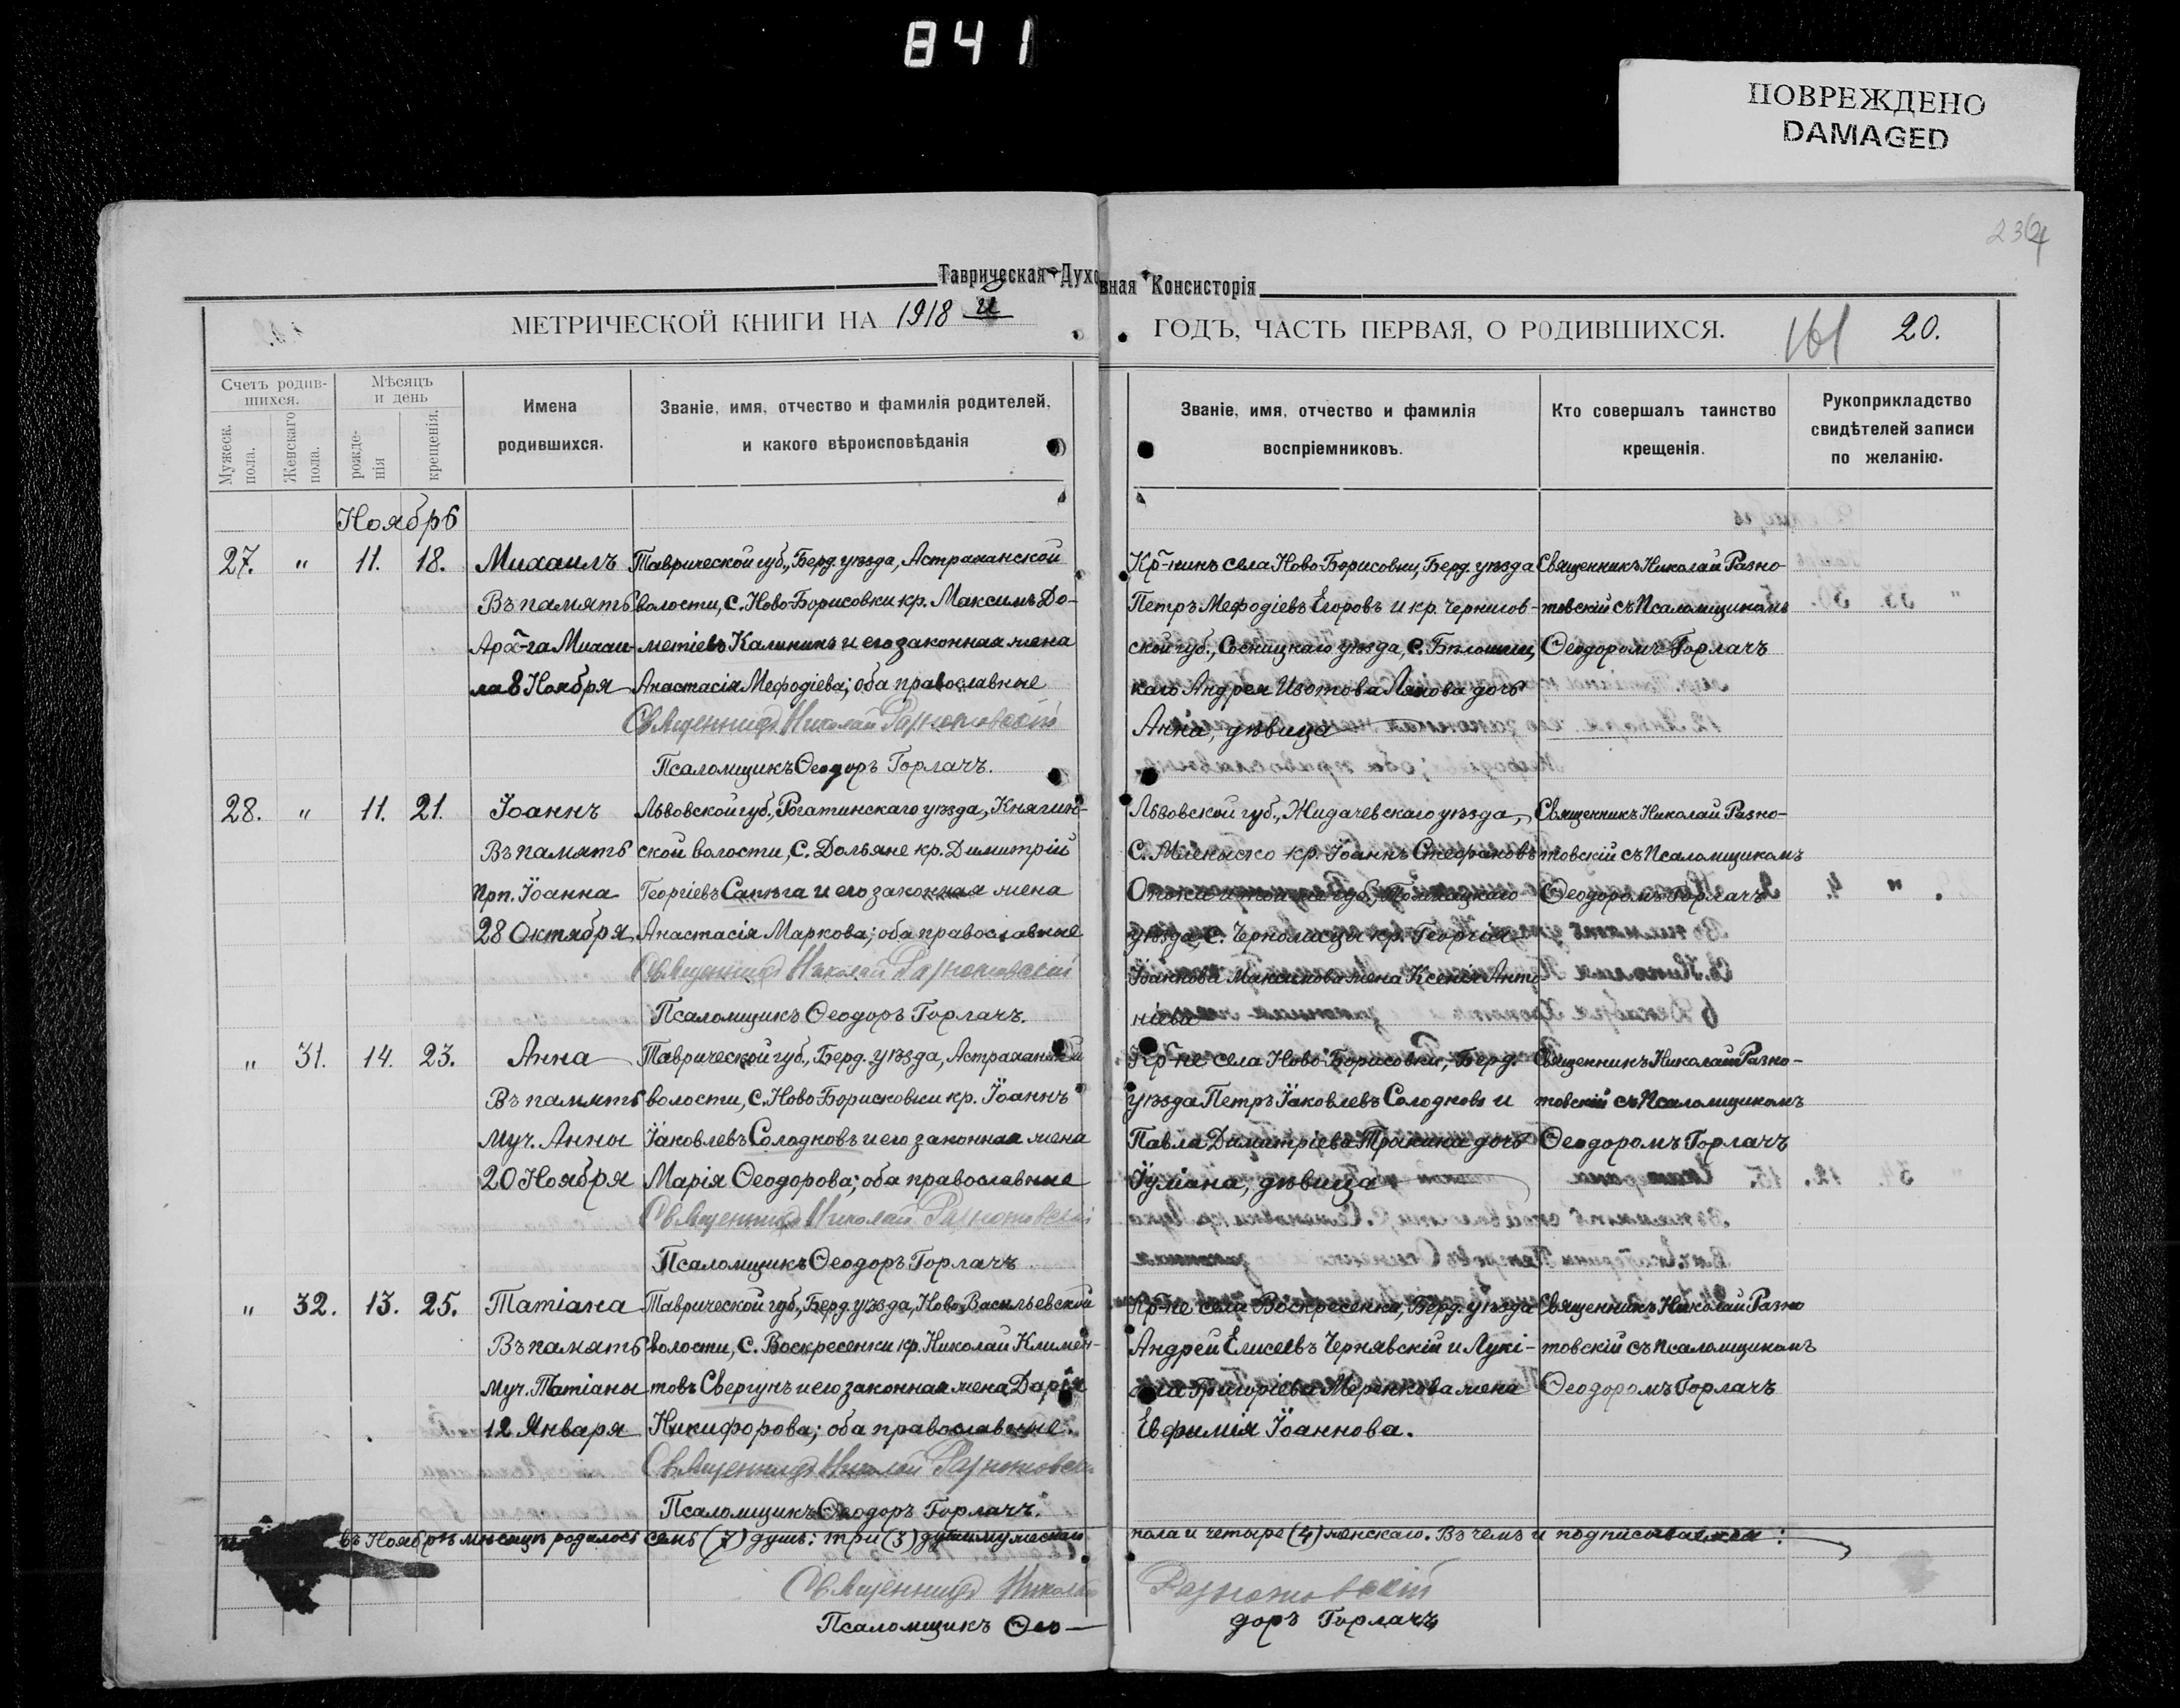 841
ПОВРЕЖДЕНО
DAMAGED
Таврическая Духовная Консисторія
МЕТРИЧЕСКОЙ КНИГИ НА 1918 й ГОДЪ, ЧАСТЬ ПЕРВАЯ, О РОДИВШИХСЯ. 161 20.
Счетъ родив-
шихся.
Мужеск. пола.
Женскаго пола.
Мѣсяцъ
и день
рожде-
нія
крещенія.
Имена
родившихся.
Званіе, имя, отчество и фамилія родителей,
и какого вѣроисповѣданія
Званіе, имя, отчество и фамилія
воспріемниковъ.
Кто совершалъ таинство
крещенія.
Рукоприкладство
свидѣтелей записи
по желанію.
Ноябрь
27. " 11. 18.
Михаилъ
Въ память
Арх-га Михаи-
ла 8 Ноября
Таврической губ., Берд. уѣзда, Астраханской
волости, с. Ново-Борисовки кр. Максимъ До-
метіевъ Калининъ и его законная жена
Анастасія Мефодіева; оба православные
Священникъ Николай Разнотовскій
Псаломщикъ Ѳеодоръ Горлачъ.
Кр-нинъ села Ново-Борисовки, Берд. уѣзда
Петръ Мефодіевъ Егоровъ и кр. Чернигов-
ской губ., Сосницкаго уѣзда, с.
каго Андрея Изотова дочь
Анна, дѣвица
Священникъ Николай Разно-
товскій съ Псаломщикомъ
Ѳеодоромъ Горлачъ
28. " 11. 21.
Іоаннъ
Въ память
Прп. Іоанна
28 Октября
Львовской губ., Рогатинскаго уѣзда, Княгин-
ской волости, с. Дольяне кр. Димитрій
Георгіевъ Сапѣга и его законная жена
Анастасія Маркова; оба православные
Священникъ Николай Разнотовскій
Псаломщикъ Ѳеодоръ Горлачъ.
Львовской губ., Жидачевскаго уѣзда,
с. кр. Іоаннъ Стефановъ
и той же губ.,
уѣзда, с. кр. Георгія
Іоаннова жена Ксенія Анто-
ніева
Священникъ Николай Разно-
товскій съ Псаломщикомъ
Ѳеодоромъ Горлачъ
" 31. 14. 23.
Анна
Въ память
Муч. Анны
20 Ноября
Таврической губ., Берд. уѣзда, Астраханской
волости, с. Ново Борисковки кр. Іоаннъ
Іаковлевъ Солодковъ и его законная жена
Марія Ѳеодорова; оба православные
Священникъ Николай Разнотовскій
Псаломщикъ Ѳеодоръ Горлачъ
Кр-не села Ново-Борисовки, Берд.
уѣзда Петръ Іаковлевъ Солодковъ и
Павла Димитріева дочь
Іуліана, дѣвица
Священникъ Николай Разно-
товскій съ Псаломщикомъ
Ѳеодоромъ Горлачъ
" 32. 13. 25.
Татіана
Въ память
Муч. Татіаны
12 Января
Таврической губ., Берд. уѣзда, Ново-Васильевской
волости, с. Воскресенки кр. Николай Климен-
товъ Свергунъ и его законная жена Дарія
Никифорова; оба православные.
Священникъ Николай Разнотовскій
Псаломщикъ Ѳеодоръ Горлачъ.
Кр-не села Воскресенки, Берд. уѣзда
Андрей Елисеевъ Чернявскій и Лукі-
Григоріева Меренкова жена
Евфимія Іоаннова.
Священникъ Николай Разно
товскій съ Псаломщикомъ
Ѳеодоромъ Горлачъ
въ Ноябрѣ мѣсяцѣ родилось семь (7) душъ: три (3) души мужескаго пола и четыре (4) женскаго. Въ чемъ и подписываемся:
Священникъ Николай Разнотовскій
Псаломщикъ Ѳео-доръ Горлачъ